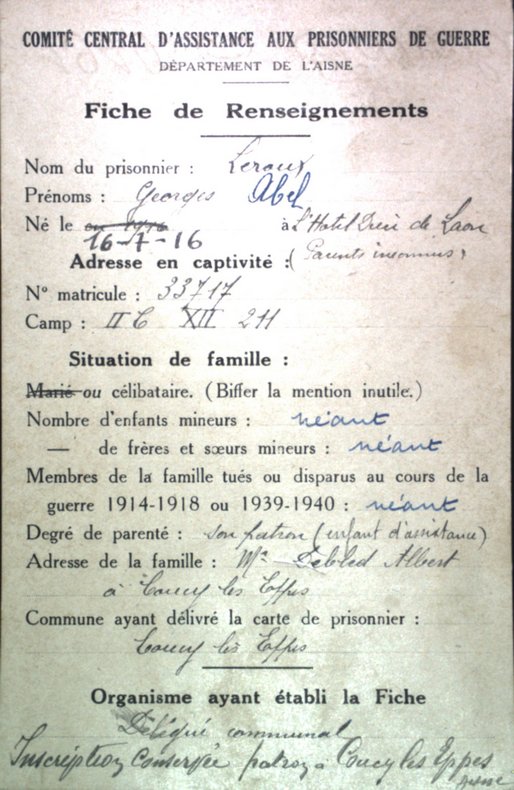 COMITÉ CENTRAL D'ASSISTANCE AUX PRISONNIERS DE GUERRE
DÉPARTEMENT DE L'AISNE
Fiche de Renseignements
Nom du prisonnier : Leroux
Prénoms : Georges Abel
Né le en 1916 à L'Hotel Dieu de Laon
16-7-16 (Parents inconnus)
Adresse en captivité :
N° matricule : 33717
Camp : II C XII 211
Situation de famille :
Marié ou célibataire. (Biffer la mention inutile.)
Nombre d'enfants mineurs : néant
— de frères et sœurs mineurs : néant
Membres de la famille tués ou disparus au cours de la
guerre 1914-1918 ou 1939-1940 : néant
Degré de parenté : son patron (enfant d'assistance)
Adresse de la famille : Mr Debled Albert
à Coucy les Eppes
Commune ayant délivré la carte de prisonnier :
Coucy les Eppes
Organisme ayant établi la Fiche
Délégué communal
Inscription Conservée patron à Coucy les Eppes
Aisne